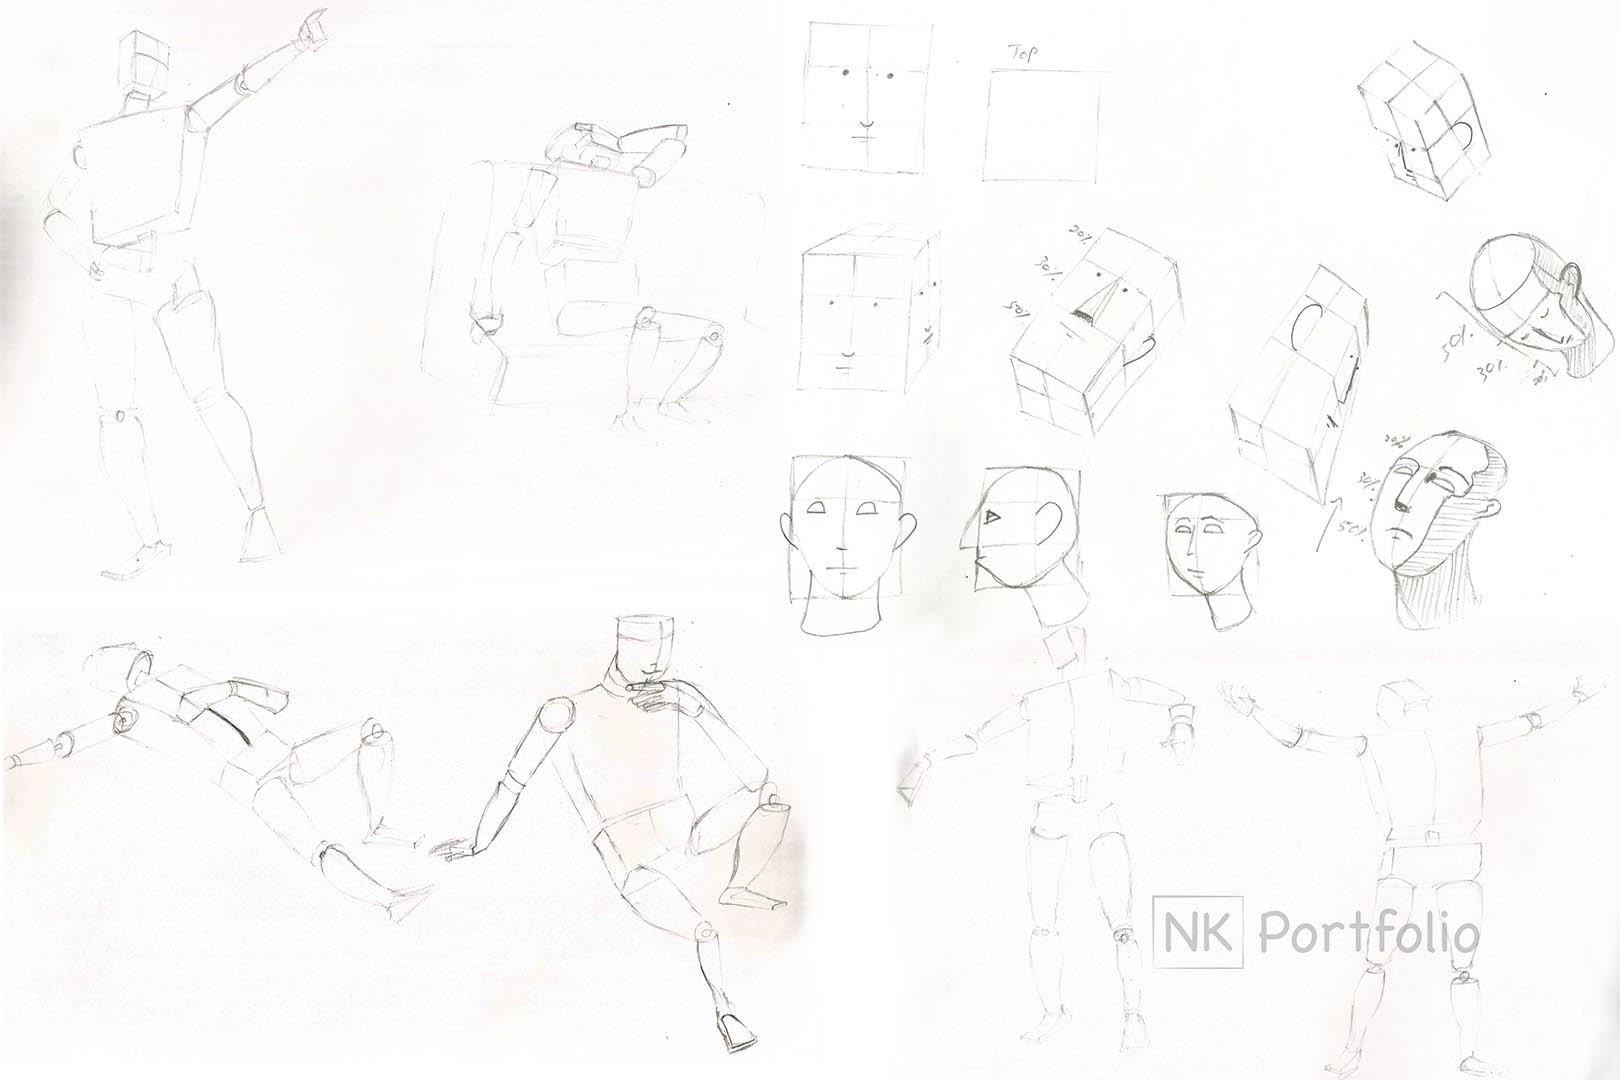 Top
20%
30%
50%
50%
30%
20%
20%
30%
50%
NK Portfolio